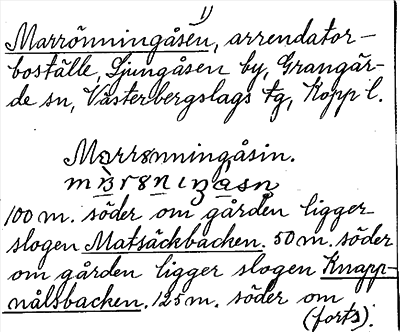 1)
Marrönningåsen, arrendator-
boställe, Ljungåsen by, Grangär-
de sn, Västerbergslags tg, Kopp l.
Marrönningåsin.
100 m. söder om gården ligger
slogen Matsäckbacken. 50 m. söder
om gården ligger slogen Knapp-
nålsbacken. 125 m. söder om
(forts).